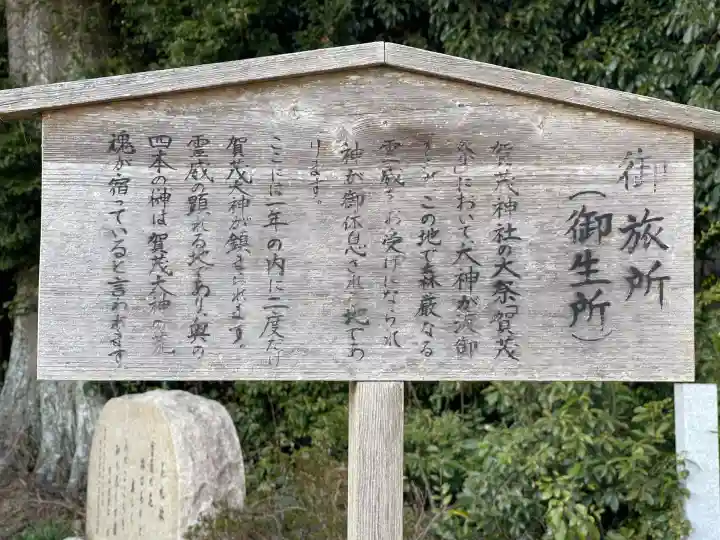 御旅所
(御生所)
賀茂神社の大祭「賀茂
祭」において大神が渡御
され この地で森厳なる
霊威をお受けになられ
神が御休息される地であ
ります。
ここには一年の内に二度だけ
賀茂大神が鎮まられます。
霊威の顕れる地であり、奥の
四本の榊は賀茂大神の荒
魂が宿っていると言われます